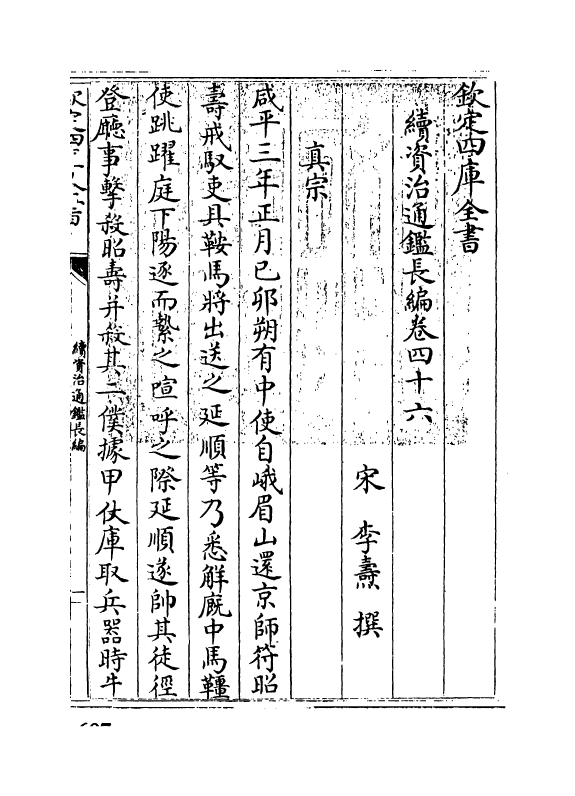 欽定四庫全書
續資治通鑑長編卷四十六
宋 李燾 撰
真宗
咸平三年正月已卯朔有中使自峨眉山還京師符昭
壽戒馭吏具鞍馬將出送之延順等乃悉解廐中馬韁
使跳躍庭下陽逐而縶之喧呼之際延順遂帥其徒徑
登廳事擊殺昭壽并殺其二僕據甲仗庫取兵器時牛
續資治通鑑長編